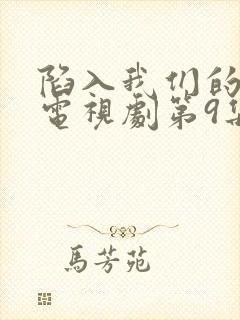 陷入我们的
電視劇第9集
馬芳苑